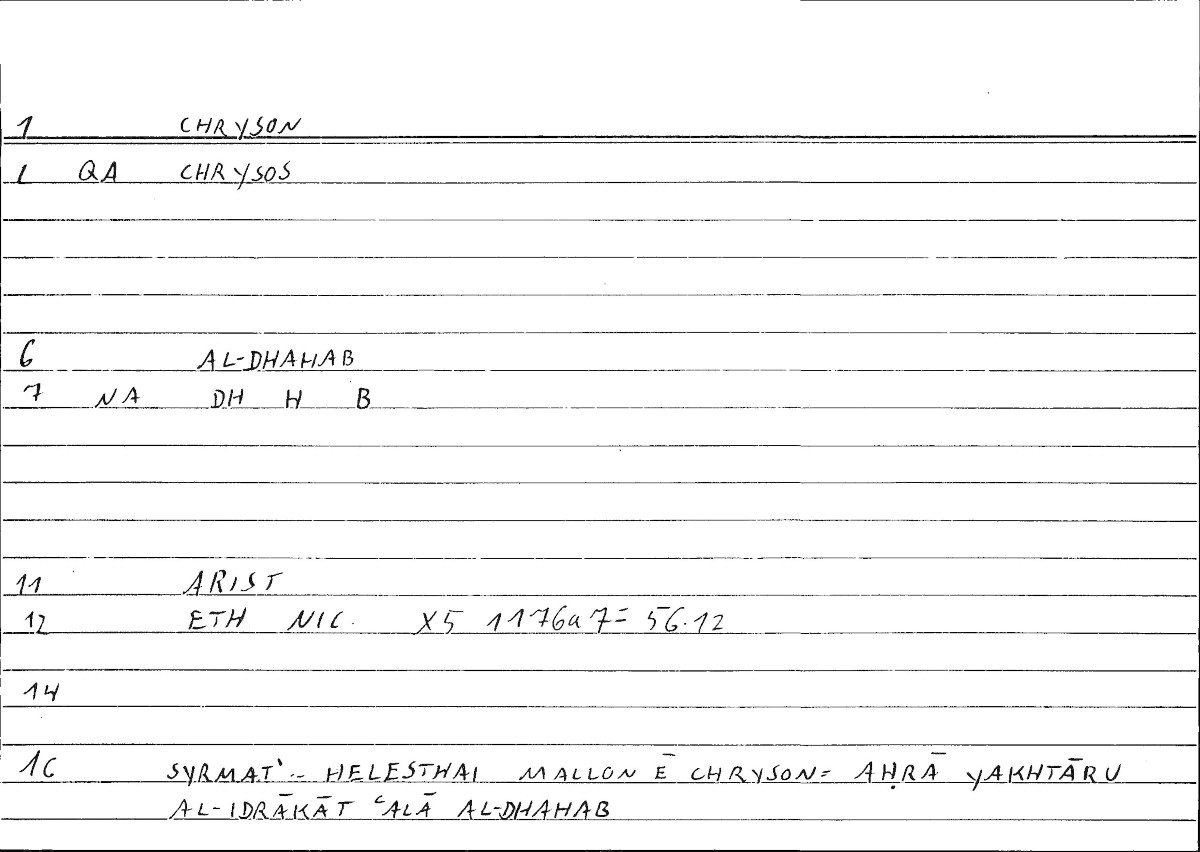 1 CHRYSON
2 QA CHRYSOS
6 AL-DHAHAB
7 NA DH H B
11 ARIST
12 ETH NIC. X5 1176a7= 56.12
14
16 SYRMAT'.. HELESTHAI MALLON Ē CHRYSON= AḤRĀ YAKHTĀRU
AL-IDRĀKĀT ʿALĀ AL-DHAHAB